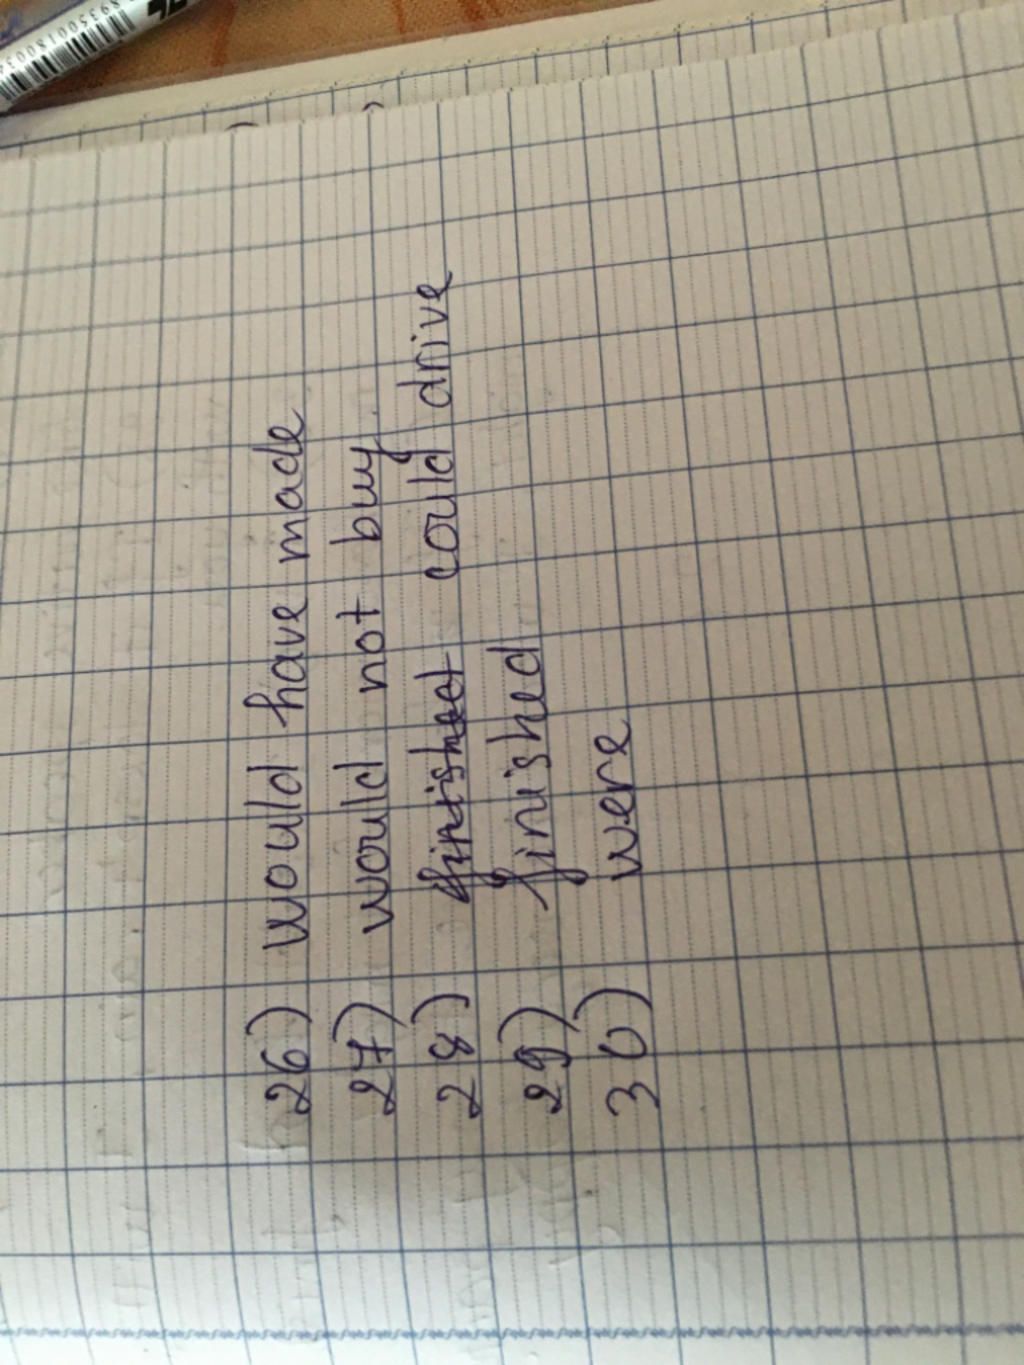 26) would have made
27) would not buy
28) finished could drive
29) finished
30) were